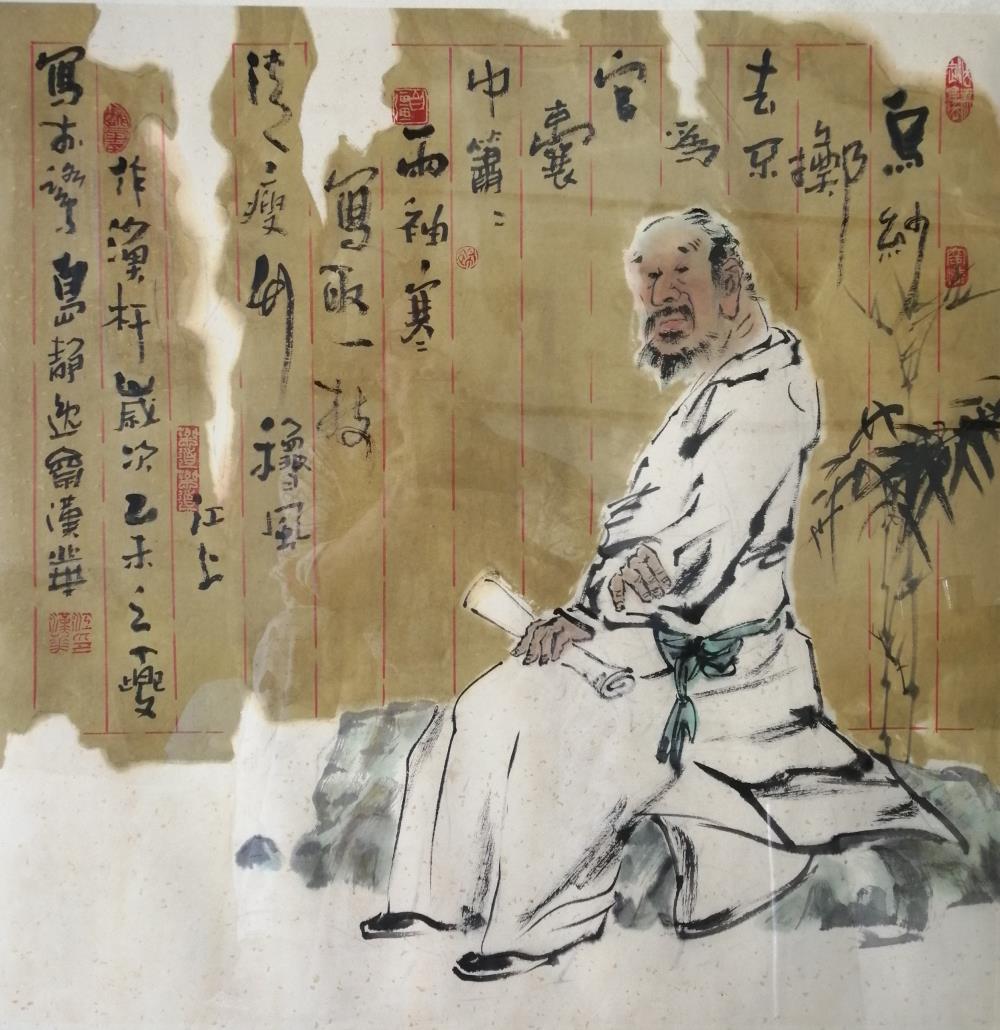 烏紗
擲
去不
為
官
囊
中蕭〻
兩袖寒
寫取一枝
清瘦竹穐風
江上
作漁杆歲次乙未之夏
寫於鷺島靜逸齋漢華